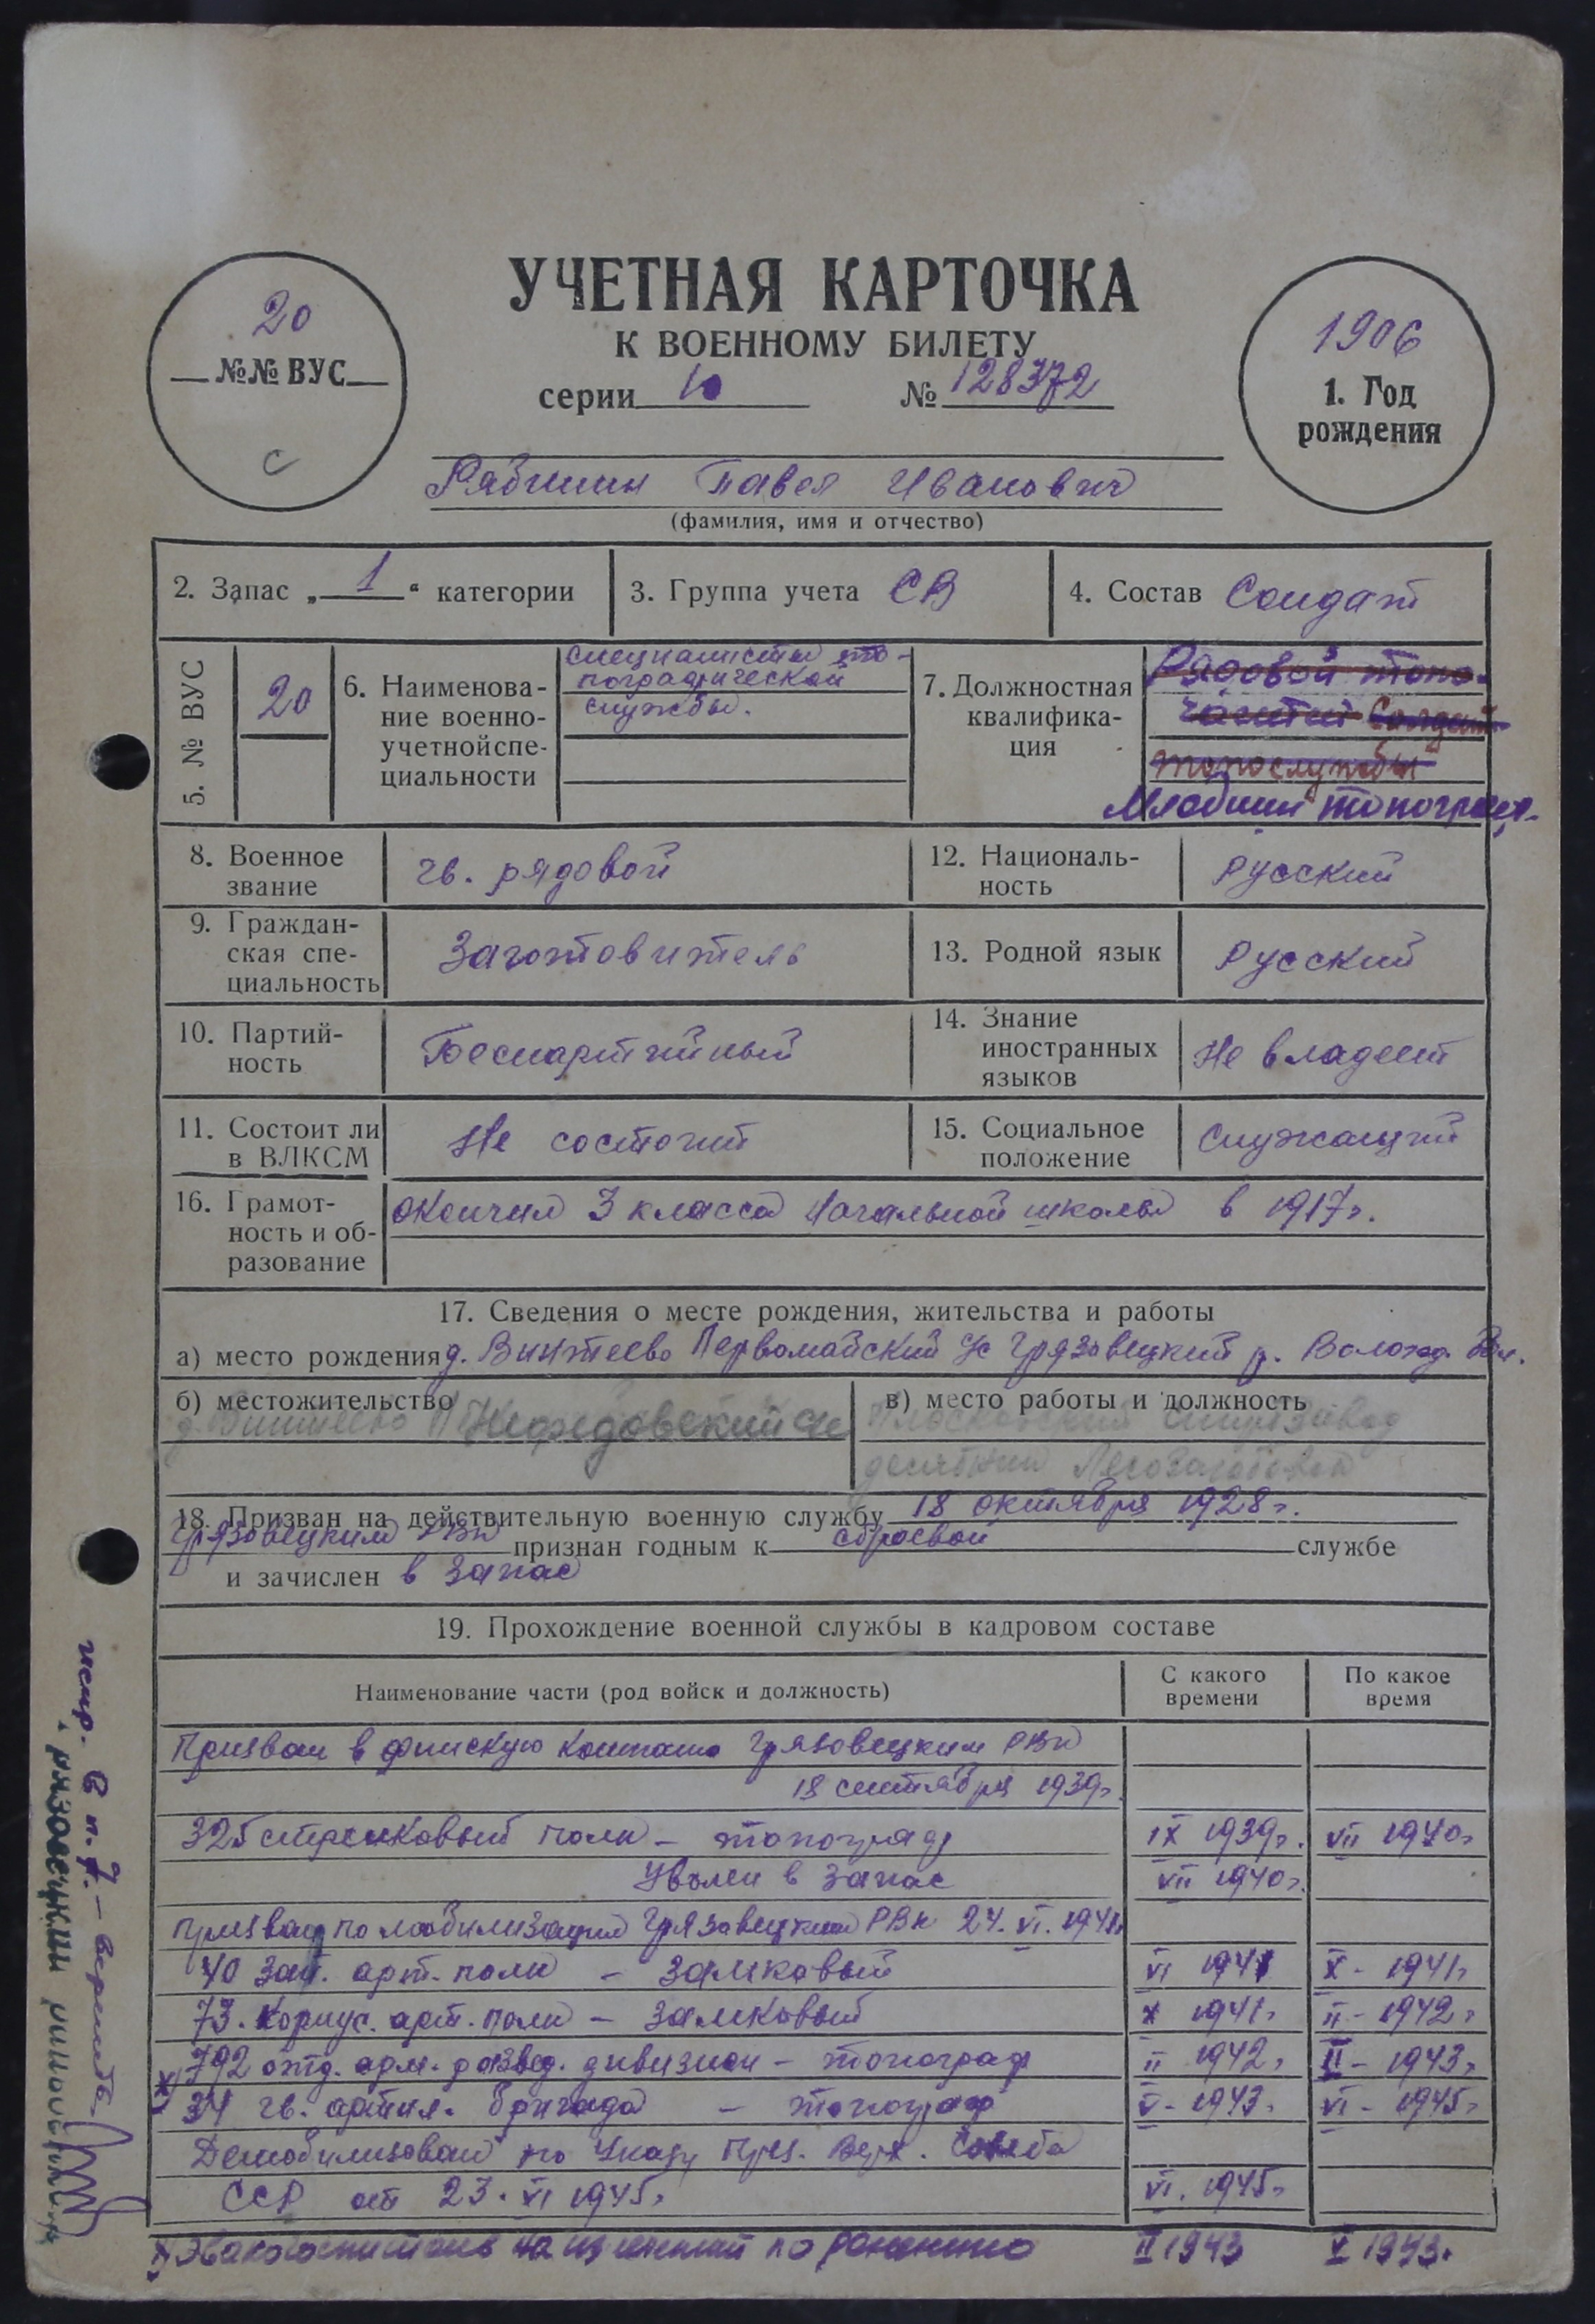 УЧЕТНАЯ КАРТОЧКА
К ВОЕННОМУ БИЛЕТУ
серии 10 № 128372
20
№№ ВУС
С
1906
1. Год
рождения
Рябинин Павел Иванович
(фамилия, имя и отчество)
2. Запас „1“ категории
3. Группа учета СВ
4. Состав Солдат
5. № ВУС 20
6. Наименова-
ние военно-
учетной спе-
циальности
специалисты то-
пографической
службы.
7. Должностная
квалифика-
ция
Рядовой топо-
Солдат
топослужбы
Младший топограф.
8. Военное
звание
гв. рядовой
12. Националь-
ность
русский
9. Граждан-
ская спе-
циальность
Заготовитель
13. Родной язык
Русский
10. Партий-
ность
Беспартийный
14. Знание
иностранных
языков
Не владеет
11. Состоит ли
в ВЛКСМ
Не состоит
15. Социальное
положение
служащий
16. Грамот-
ность и об-
разование
окончил 3 класса начальной школы в 1917г.
17. Сведения о месте рождения, жительства и работы
а) место рождения д. Винтеево Первомайский с/с Грязовецкий р. Вологод. обл.
б) местожительство
д. Винтеево Нефедовский с/с
в) место работы и должность
спиртзавод
десятник Лесозаготовок
18. Призван на действительную военную службу 18 октября 1928г.
Грязовецким РВК признан годным к строевой службе
и зачислен в запас
19. Прохождение военной службы в кадровом составе
Наименование части (род войск и должность)
С какого
времени
По какое
время
Призван в финскую компанию Грязовецким РВК
18 сентября 1939г.
325 стрелковый полк – топограф IX 1939г. VII 1940г.
Уволен в запас VII 1940г.
Призван по мобилизации Грязовецким РВК 24.VI.1941г.
40 зап. арт. полк – замковый VI 1941 X - 1941г.
73. корпус. арт. полк – замковый X 1941г. II - 1942г.
792 отд. арт. развед. дивизион – топограф II 1942г. II - 1943г.
34 гв. артил. бригада – топограф V - 1943г. VI - 1945г.
Демобилизован по Указу През. Верх. Совета
ССР от 23.VI 1945г. VI. 1945г.
х) Эвакогоспиталь на излечении по ранению II 1943 V 1943г.
испр. в п. 7 – верить